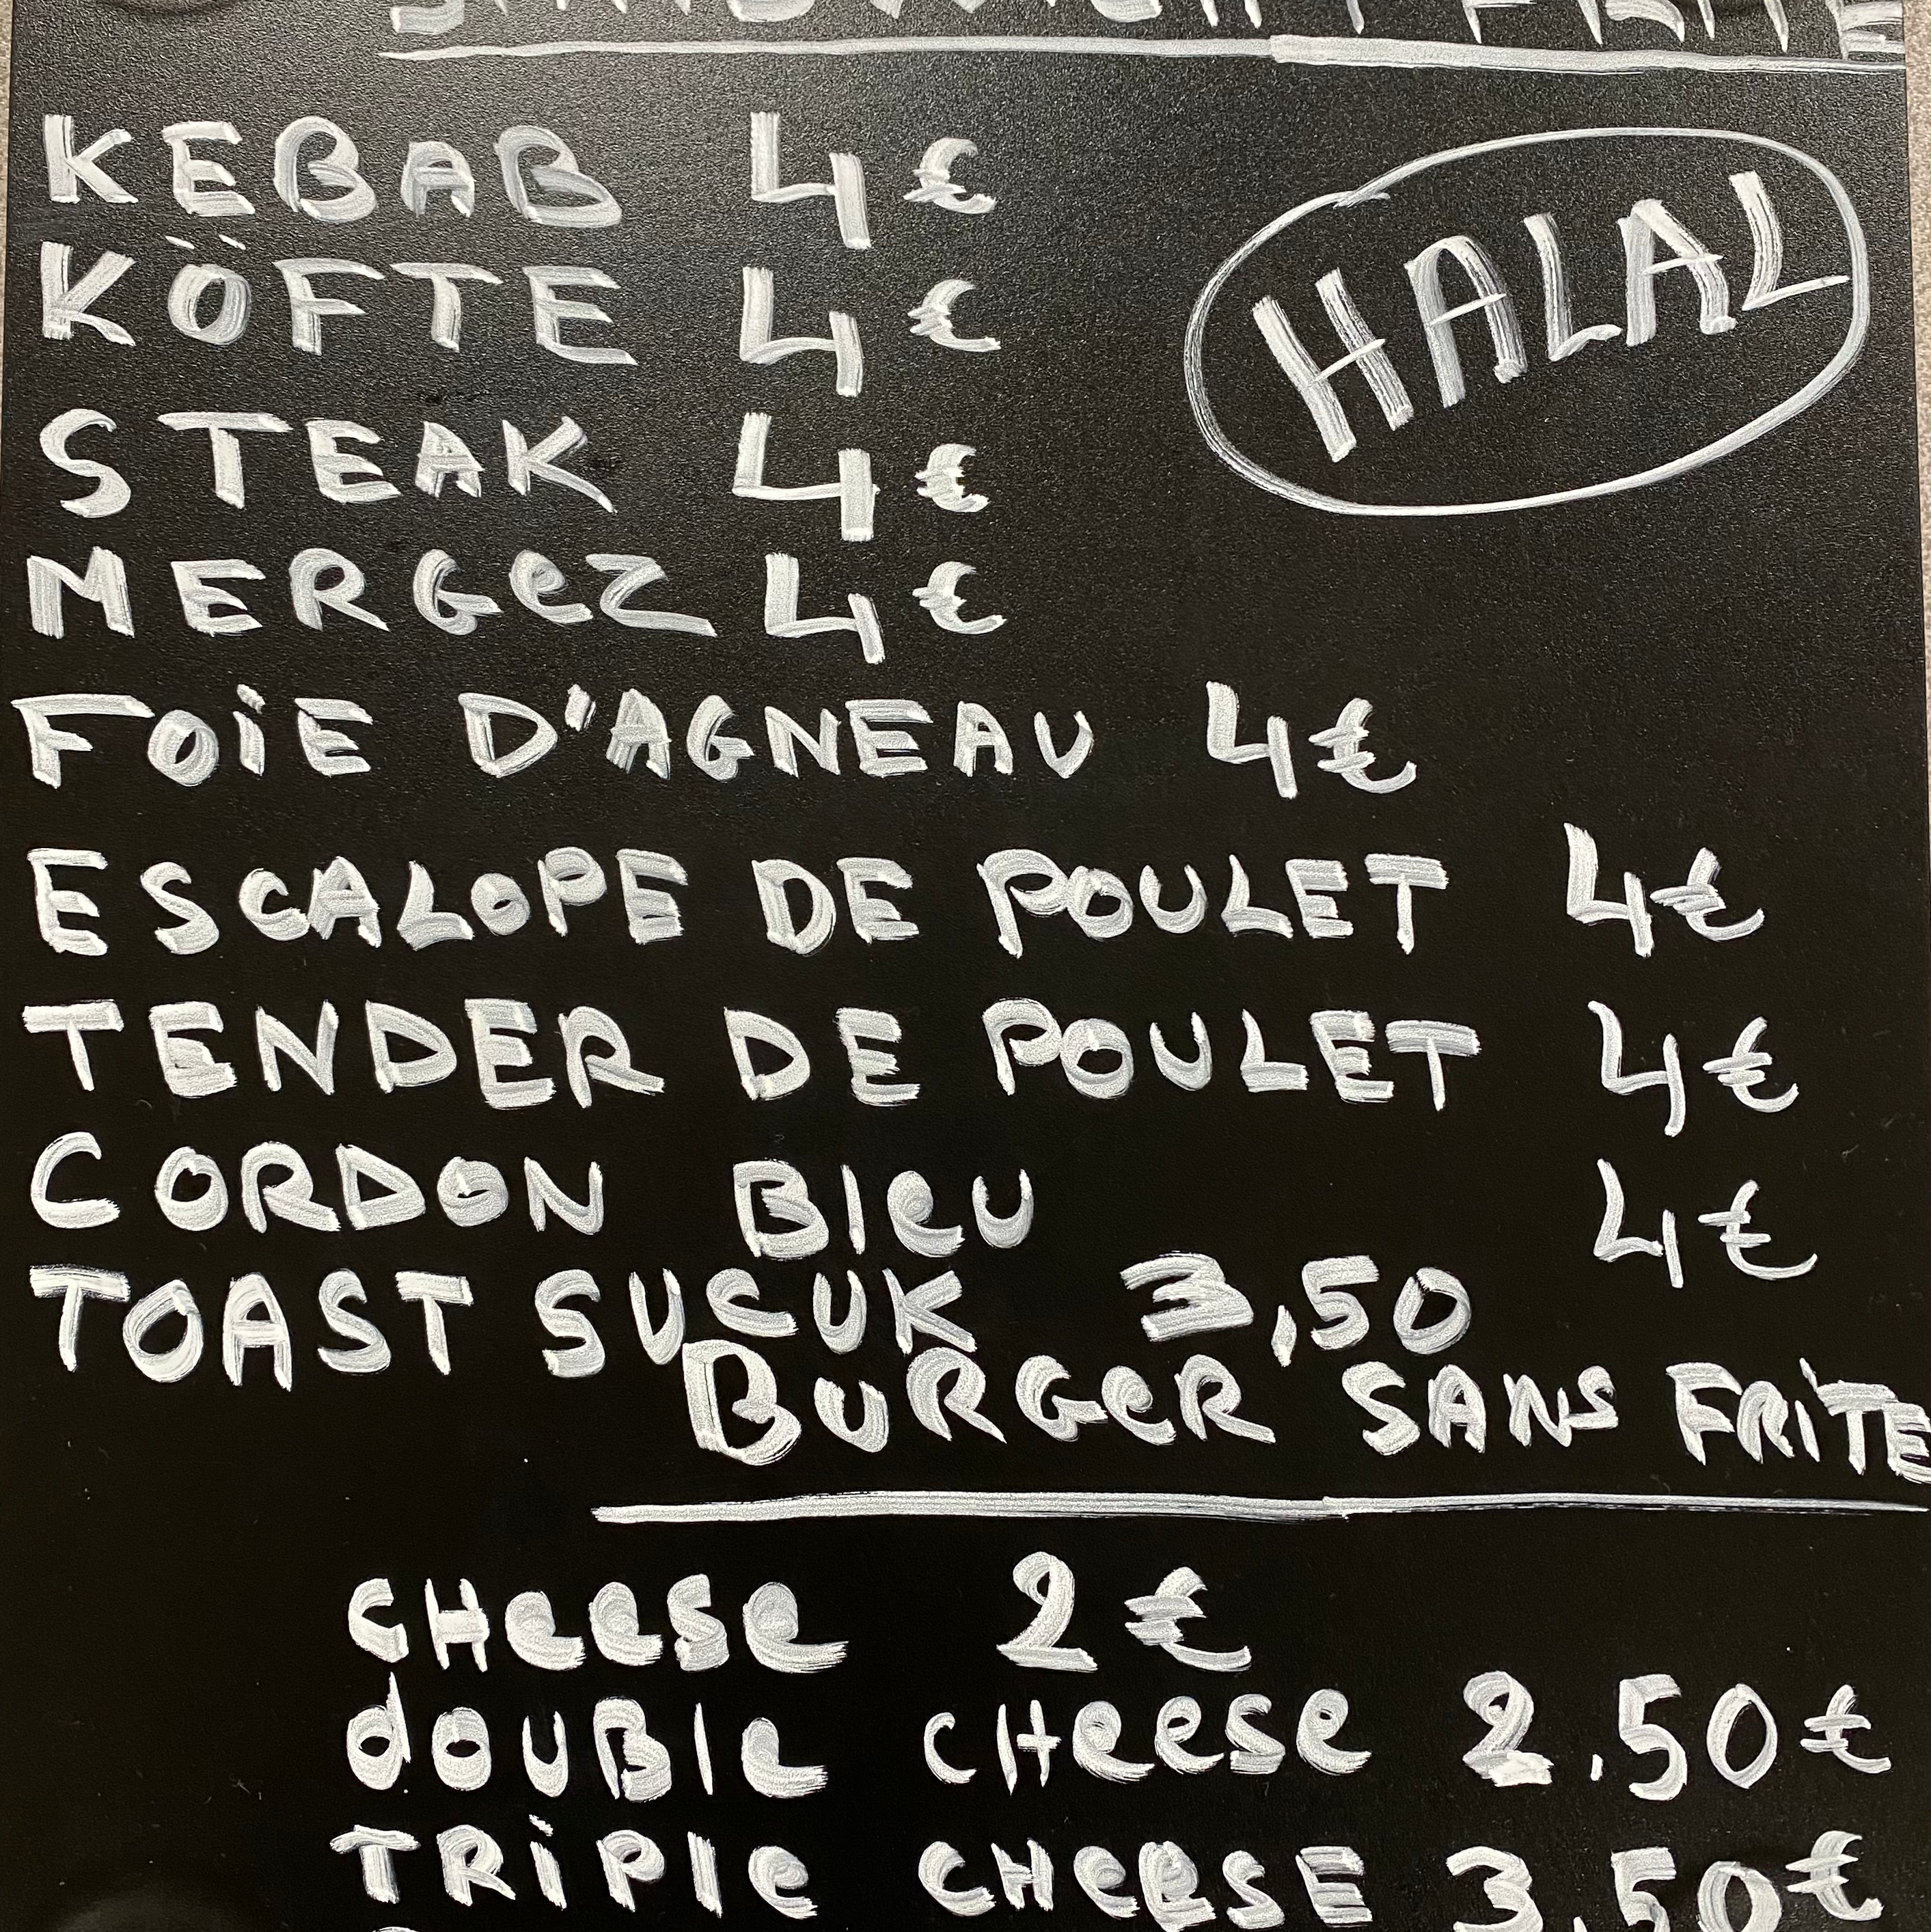 SANDWICH FRITE
KEBAB 4€
KÖFTE 4€
HALAL
STEAK 4€
MERGeZ 4€
FOiE D'AGNEAU 4€
ESCALOPE DE POULET 4€
TENDER DE POULET 4€
CORDON BleU 4€
TOAST SUCUK 3,50
BURGeR SANS FRiTE
CHeese 2€
dOUBle CHeese 2.50€
TRiPle CHeesE 3,50€